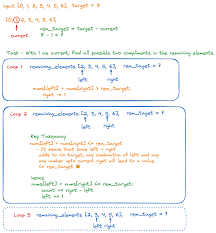 input [0, 1, 2, 3, 4, 5, 6], target = 8
current
rem_target = target - current
8 - 1 = 7
Task - With 1 as current, find all possible two compliments in the remaining elements
Loop 1
remaining_elements [2, 3, 4, 5, 6], rem_target = 7
left
right
nums[left] + nums[right] > rem_target
right -= 1
Loop 2
remaining_elements [2, 3, 4, 5, 6], rem_target = 7
left
right
Key Takeaway
nums[left] + nums[right] <= rem_target
- It means that since left + right
adds to <= target, any combination of left and any
any number upto current right will lead to a value
<= rem_target
Hence
nums[left] + nums[right] <= rem_target:
count += right - left
left += 1
Loop 3
remaining_elements [2, 3, 4, 5, 6], rem_target = 7